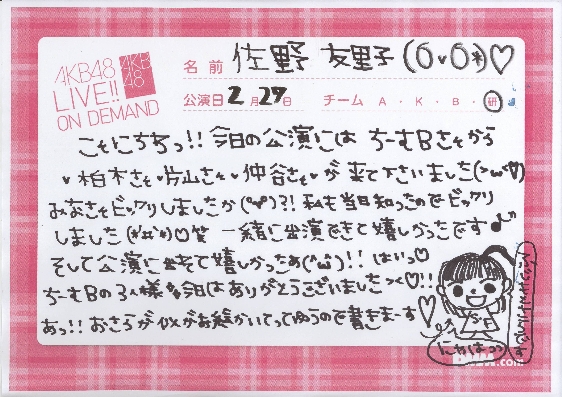 AKB48
LIVE!!
ON DEMAND
AKB
48
名前 佐野 友里子
公演日 2月29日 チーム A・K・B・研
こんにちちっ!! 今日の公演には ちーむBさんから
柏木さん 片山さん 仲谷さん が 来て下さいました
みなさんビックリしましたか?! 私も当日知ったのでビックリ
しました 笑 一緒に出演できて嬉しかったです♪
そして公演に出れて嬉しかったあ!! はいっ♡
ちーむBの3人様 今日はありがとうございましたっ♡!!
あっ!! おきらが似がお絵かいてってゆうので書きまーす
にゃはっっ
.com